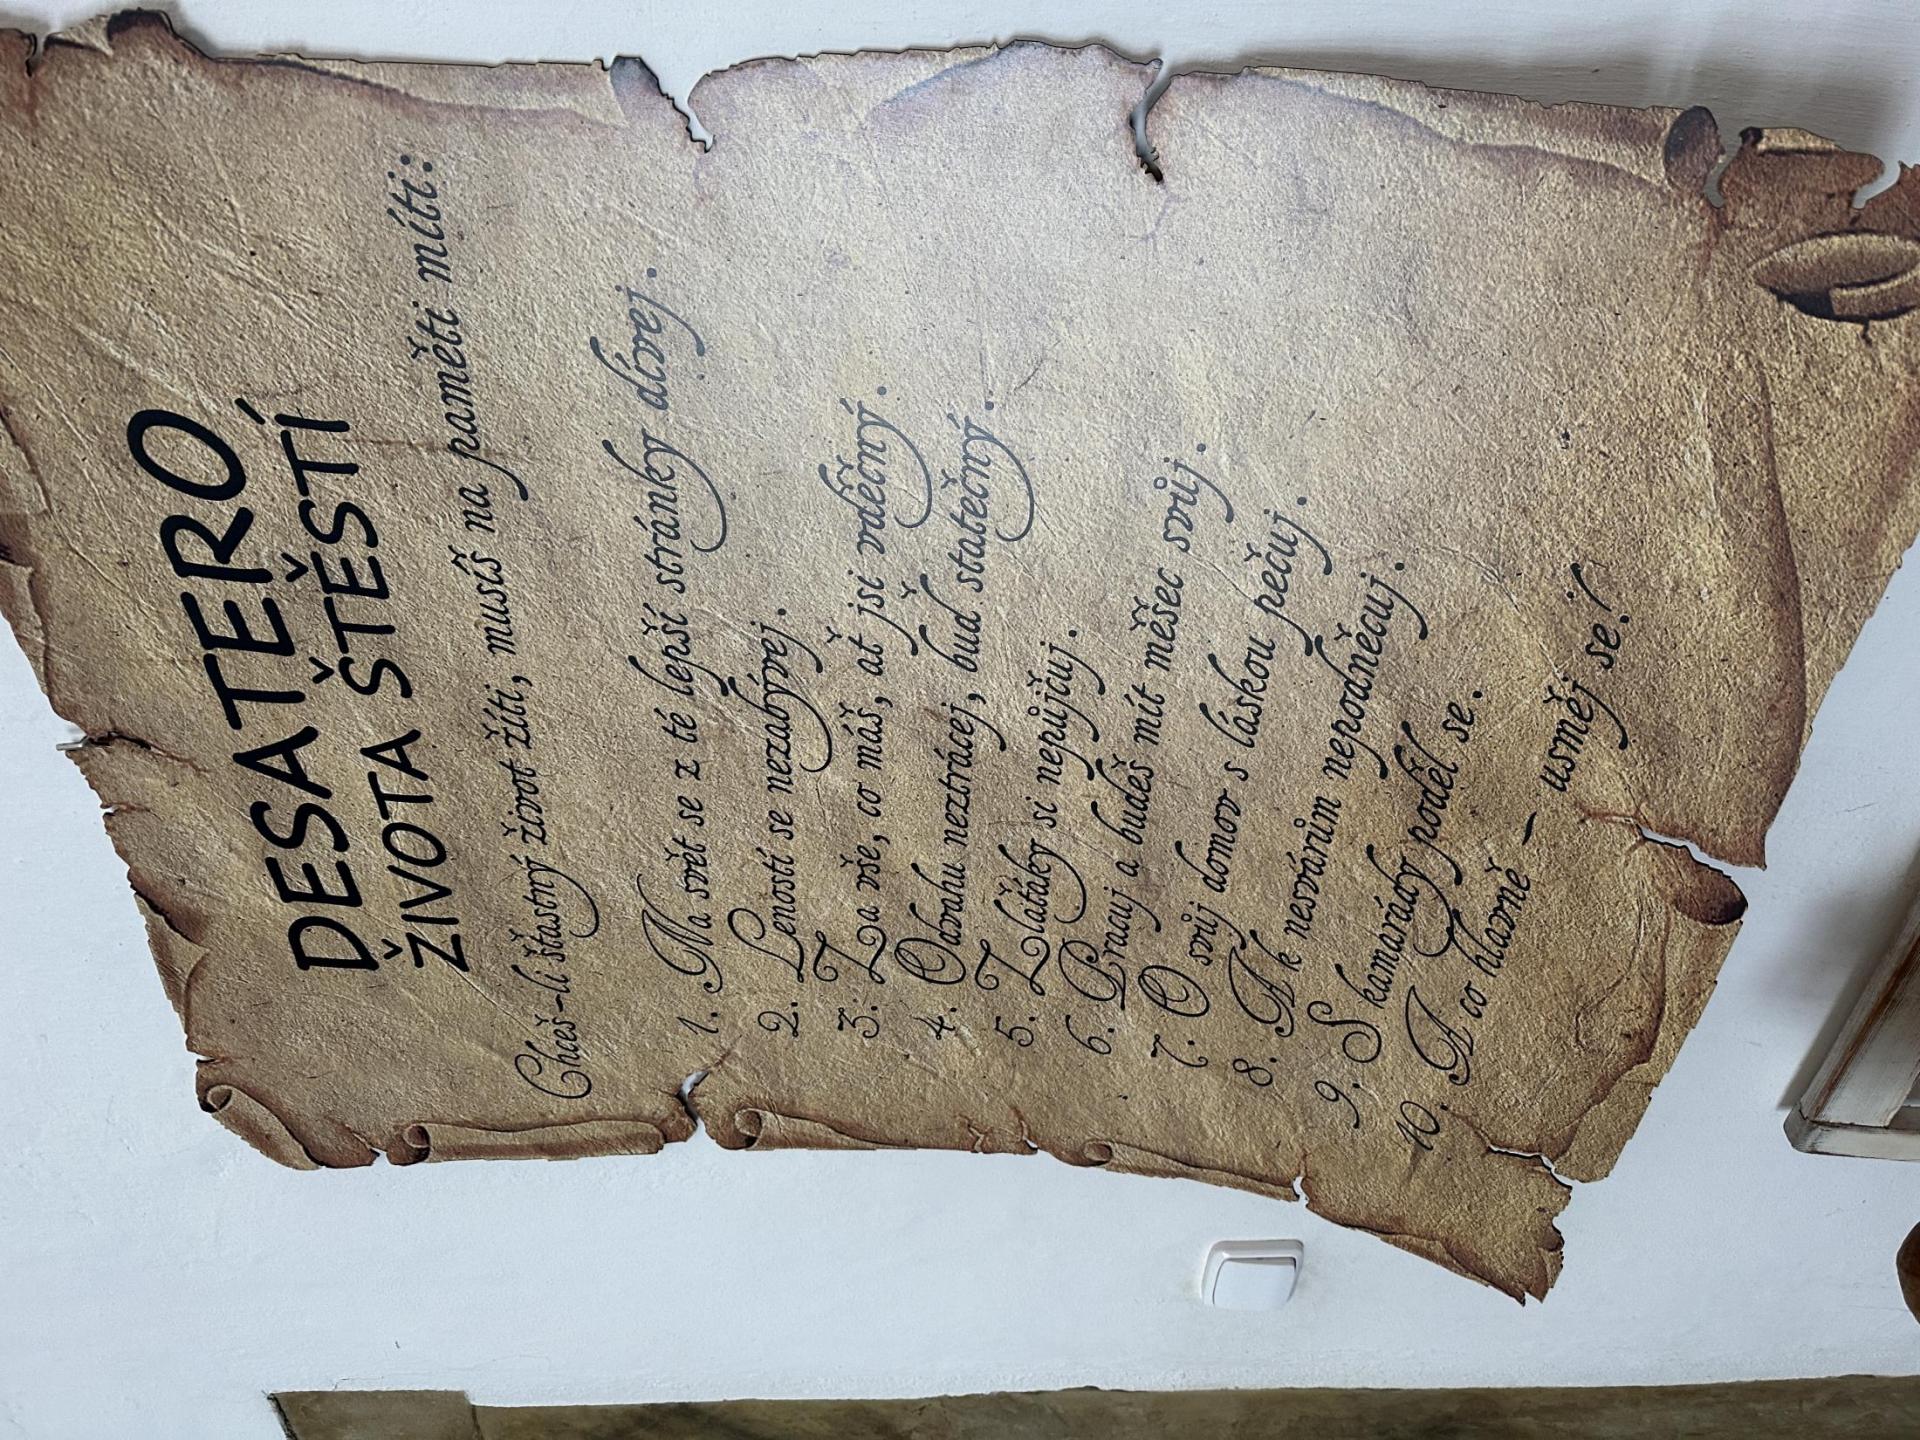 DESATERO
ŽIVOTA ŠTĚSTÍ
Chceš-li šťastný život žíti, musíš na paměti míti:
1. Na svět se z té lepší stránky dívej.
2. Leností se nezabývej.
3. Za vše, co máš, ať jsi vděčný.
4. Odvahu neztrácej, bud statečný.
5. Zlaťáky si nepůjčuj.
6. Pracuj a budeš mít měšec svůj.
7. O svůj domov s láskou pečuj.
8. A k nesvárům nepodněcuj.
9. S kamarády poděl se.
10. A co hlavně – usměj se!